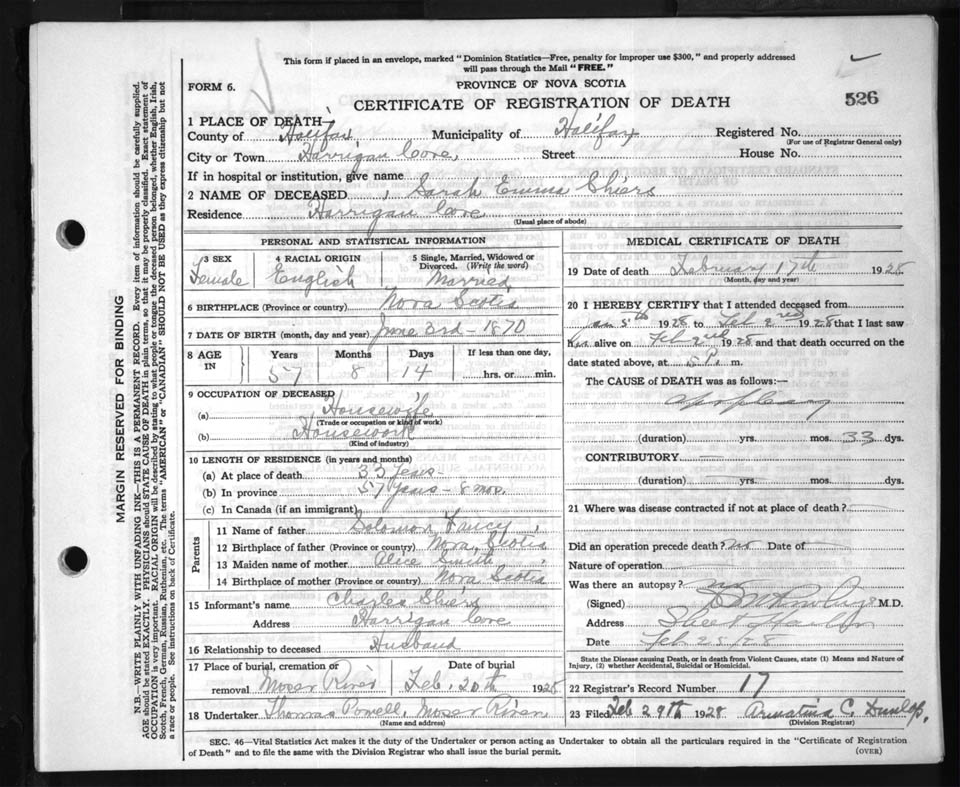 This form if placed in an envelope, marked "Dominion Statistics—Free, penalty for improper use $300," and properly addressed
will pass through the Mail "FREE."
FORM 6.
PROVINCE OF NOVA SCOTIA
CERTIFICATE OF REGISTRATION OF DEATH
526
1 PLACE OF DEATH
County of Halifax Municipality of Halifax Registered No.
(For use of Registrar General only)
City or Town Harrigan Cove Street House No.
If in hospital or institution, give name
2 NAME OF DECEASED Sarah Emma Shiers
Residence Harrigan Cove
(Usual place of abode)
PERSONAL AND STATISTICAL INFORMATION
3 SEX 4 RACIAL ORIGIN 5 Single, Married, Widowed or
Divorced. (Write the word)
Female English Married
6 BIRTHPLACE (Province or country) Nova Scotia
7 DATE OF BIRTH (month, day and year) June 3rd - 1870
8 AGE IN Years Months Days If less than one day,
57 8 14 hrs. or min.
9 OCCUPATION OF DECEASED
(a) Housewife
(Trade or occupation or kind of work)
(b) Housework
(Kind of industry)
10 LENGTH OF RESIDENCE (in years and months)
(a) At place of death 33 Years -
(b) In province 57 Years - 8 mos.
(c) In Canada (if an immigrant)
Parents
11 Name of father Solomon Fancy
12 Birthplace of father (Province or country) Nova Scotia
13 Maiden name of mother Alice Smith
14 Birthplace of mother (Province or country) Nova Scotia
15 Informant's name Charles Shiers
Address Harrigan Cove
16 Relationship to deceased Husband
17 Place of burial, cremation or removal Moser River
Date of burial Feb. 20th 1928
18 Undertaker Thomas Powell, Moser River
(Name and address)
MEDICAL CERTIFICATE OF DEATH
19 Date of death February 17th 1928
(Month, day and year)
20 I HEREBY CERTIFY that I attended deceased from
Jan 5th 1928 to Feb 2nd 1928 that I last saw
her alive on Feb 2nd 1928 and that death occurred on the
date stated above, at 5 P. m.
The CAUSE OF DEATH was as follows:—
Apoplexy
(duration) yrs. mos. 33 dys.
CONTRIBUTORY
(duration) yrs. mos. dys.
21 Where was disease contracted if not at place of death?
Did an operation precede death? no Date of
Nature of operation
Was there an autopsy? no
(Signed) M.D.
Address Sheet Harbor
Date Feb 28/28
State the Disease causing Death, or in death from Violent Causes, state (1) Means and Nature of
Injury, (2) whether Accidental, Suicidal or Homicidal.
22 Registrar's Record Number 17
23 Filed Feb 29th 1928 C. Dunlop.
(Division Registrar)
SEC. 46—Vital Statistics Act makes it the duty of the Undertaker or person acting as Undertaker to obtain all the particulars required in the "Certificate of Registration
of Death" and to file the same with the Division Registrar who shall issue the burial permit.
(OVER)
MARGIN RESERVED FOR BINDING
N.B.—WRITE PLAINLY WITH UNFADING INK—THIS IS A PERMANENT RECORD. Every item of information should be carefully supplied.
AGE should be stated EXACTLY. PHYSICIANS should STATE CAUSE OF DEATH in plain terms, so that it may be properly classified. Exact statement of
OCCUPATION is very important. RACIAL ORIGIN will be described by stating to what people or tongue the deceased person belonged, whether English, Irish,
Scotch, French, German, Russian, Ruthenian, etc. The terms "AMERICAN" or "CANADIAN" SHOULD NOT BE USED as they express citizenship but not
a race or people. See instructions on back of Certificate.